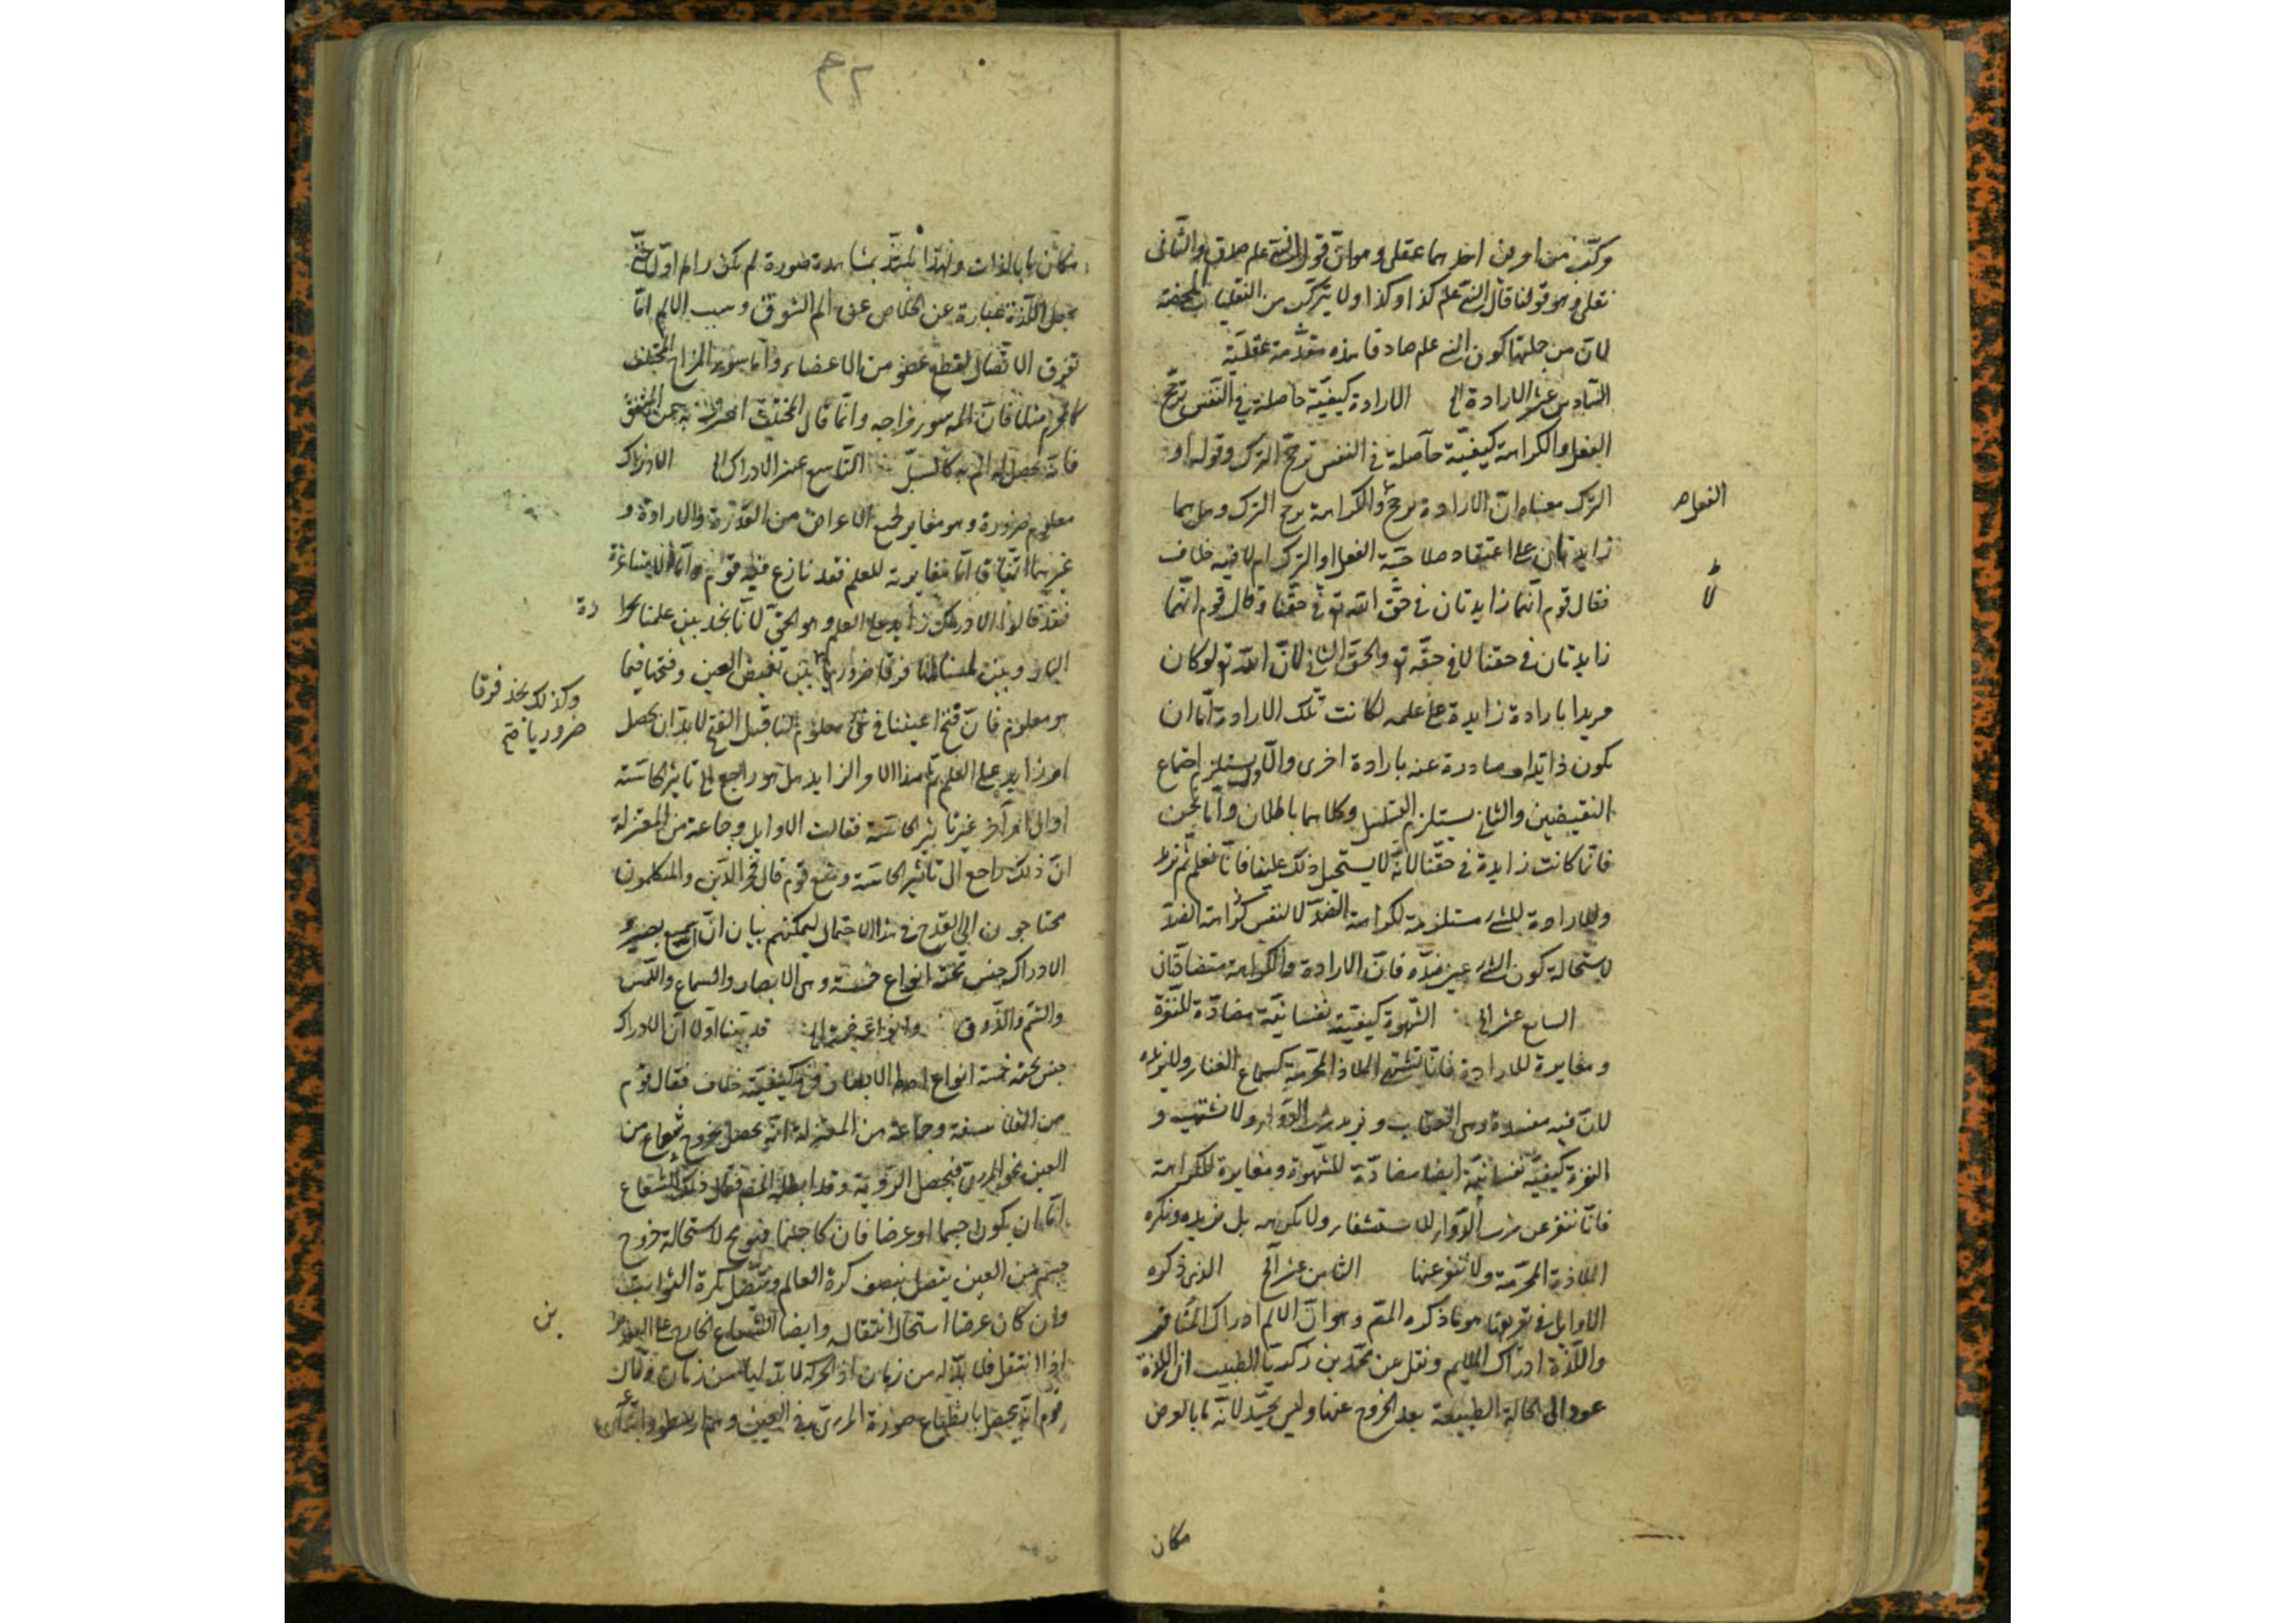 مركب من امرين احدهما عقلى وهو ان قول النبى علم صدق والثانى
نقلى وهو قولنا قال النبى علم كذا وكذا ولا يتركب من النقليات المحضة
لان من جملتها كون النبى علم صادقا هذه مقدمة عقلية
السادس عشر الارادة الى الارادة كيفية حاصلة فى النفس ترجح
الفعل والكراهة كيفية حاصلة فى النفس ترجح الترك وقوله او
الترك معناه ان الارادة ترجح والكراهة ترجح الترك وهل هما
الفعل صح
زايدتان على اعتقاد صلاحية الفعل او الترك ام لا فيه خلاف
فقال قوم انهما زايدتان فى حق الله تع وفى حقنا وقال قوم انهما
لا
زايدتان فى حقنا لا فى حقه تع والحق الثانى لان الله تع لو كان
مريدا بارادة زايدة على علمه لكانت تلك الارادة اما ان
يكون ذاتية او صادرة عنه بارادة اخرى والاول يستلزم اجتماع
النقيضين والثانى يستلزم التسلسل وكلاهما باطلان واما نحن
فانما كانت زايدة فى حقنا لانه لا يستحيل ذلك علينا فانا نعلم ثم نريد
والارادة للشئ مستلزمة لكراهة الضد لا لنفس كراهة الضد
لاستحالة كون الشئ عين ضده فان الارادة والكراهة متضادتان
السابع عشر الى الشهوة كيفية نفسانية مضادة للنفرة
ومغايرة للارادة فانا نشتهى الملاذ المحرمة كسماع الغناء ولا نريده
لان فيه مفسدة وهى العقاب ونريد شرب الدواء ولا نشتهيه و
النفرة كيفية نفسانية ايضا مضادة للشهوة ومغايرة للكراهة
فانا ننفر عن شرب الدواء للاستشفاء ولا نكرهه بل نريده ونكره
الملاذ المحرمة ولا ننفر عنها الثامن عشر الخ الذى ذكره
الاوايل فى تعريفها هو ما ذكره المص وهو ان الالم ادراك المنافى
واللذة ادراك الملايم ونقل عن محمد بن زكريا الطبيب ان اللذة
عود الى الحالة الطبيعية بعد الخروج عنها وليس بجيد لانه ما بالعرض
مكان
مكان ما بالذات ولهذا يلتذ بمشاهدة صورة لم يكن راها اولا حتى
يجعل اللذة عبارة عن الخلاص عن الم الشوق وسبب الالم اما
تفرق الاتصال لقطع عضو من الاعضاء واما سوء المزاج المختلف
كالمحرم مثلا فان المه سوء مزاجه وانما قال المختلف احترز به عن المتفق
فانه يحصل له الم به كالسل التاسع عشر الادراك الى الادراك
معلوم ضرورة وهو مغاير لجميع الاعراض من القدرة والارادة و
غيرهما اتفاقا اما مغايرته للعلم فقد نازع فيه قوم واما الاشاعرة
فقد قالوا الادراك زايد على العلم وهو الحق لانا نجد بين علمنا بحرا
رة
النار وبين لمسنا لها فرقا ضروريا بين تغميض العين وفتحها فيما
وكذلك نجد فرقا
ضروريا صح
هو معلوم فان فتح اعيننا فى شئ معلوم لنا قبل الفتح لا بد ان يحصل
امر زايد على العلم ثم هذا الامر الزايد هل هو راجع الى تاثير الحاسة
او الى امر آخر غير تاثير الحاسة فقالت الاوايل وجماعة من المعتزلة
ان ذلك راجع الى تاثير الحاسة ومنع قوم قال فخر الدين والمتكلمون
محتاجون الى القدح فى هذا الاحتمال ليمكنهم بيان ان الله سميع بصير و
الادراك جنس تحته انواع خمسة وهى الابصار والسماع واللمس
والشم والذوق وانواعه خمسة الى قد بينا اولا ان الادراك
جنس تحته خمسة انواع احدها الابصار وفى كيفيته خلاف فقال قوم
من الفلاسفة وجماعة من المعتزلة انه يحصل بخروج شعاع من
العين نحو المرئى فيحصل الرؤية وقد ابطله المص فقال ذلك الشعاع
اما ان يكون جسما او عرضا فان كان جسما فهو مح لاستحالة خروج
جسم من العين يتصل بنصف كرة العالم ويتصل بكرة الثوابت
وان كان عرضا استحال انتقاله وايضا الشعاع الخارج على
ين
اذا انتقل فلا بد له من زمان اذ الحركة لا بد لها من زمان وقال
قوم انه يحصل بانطباع صورة المرئى فى العين وهم ارسطو واتباعه